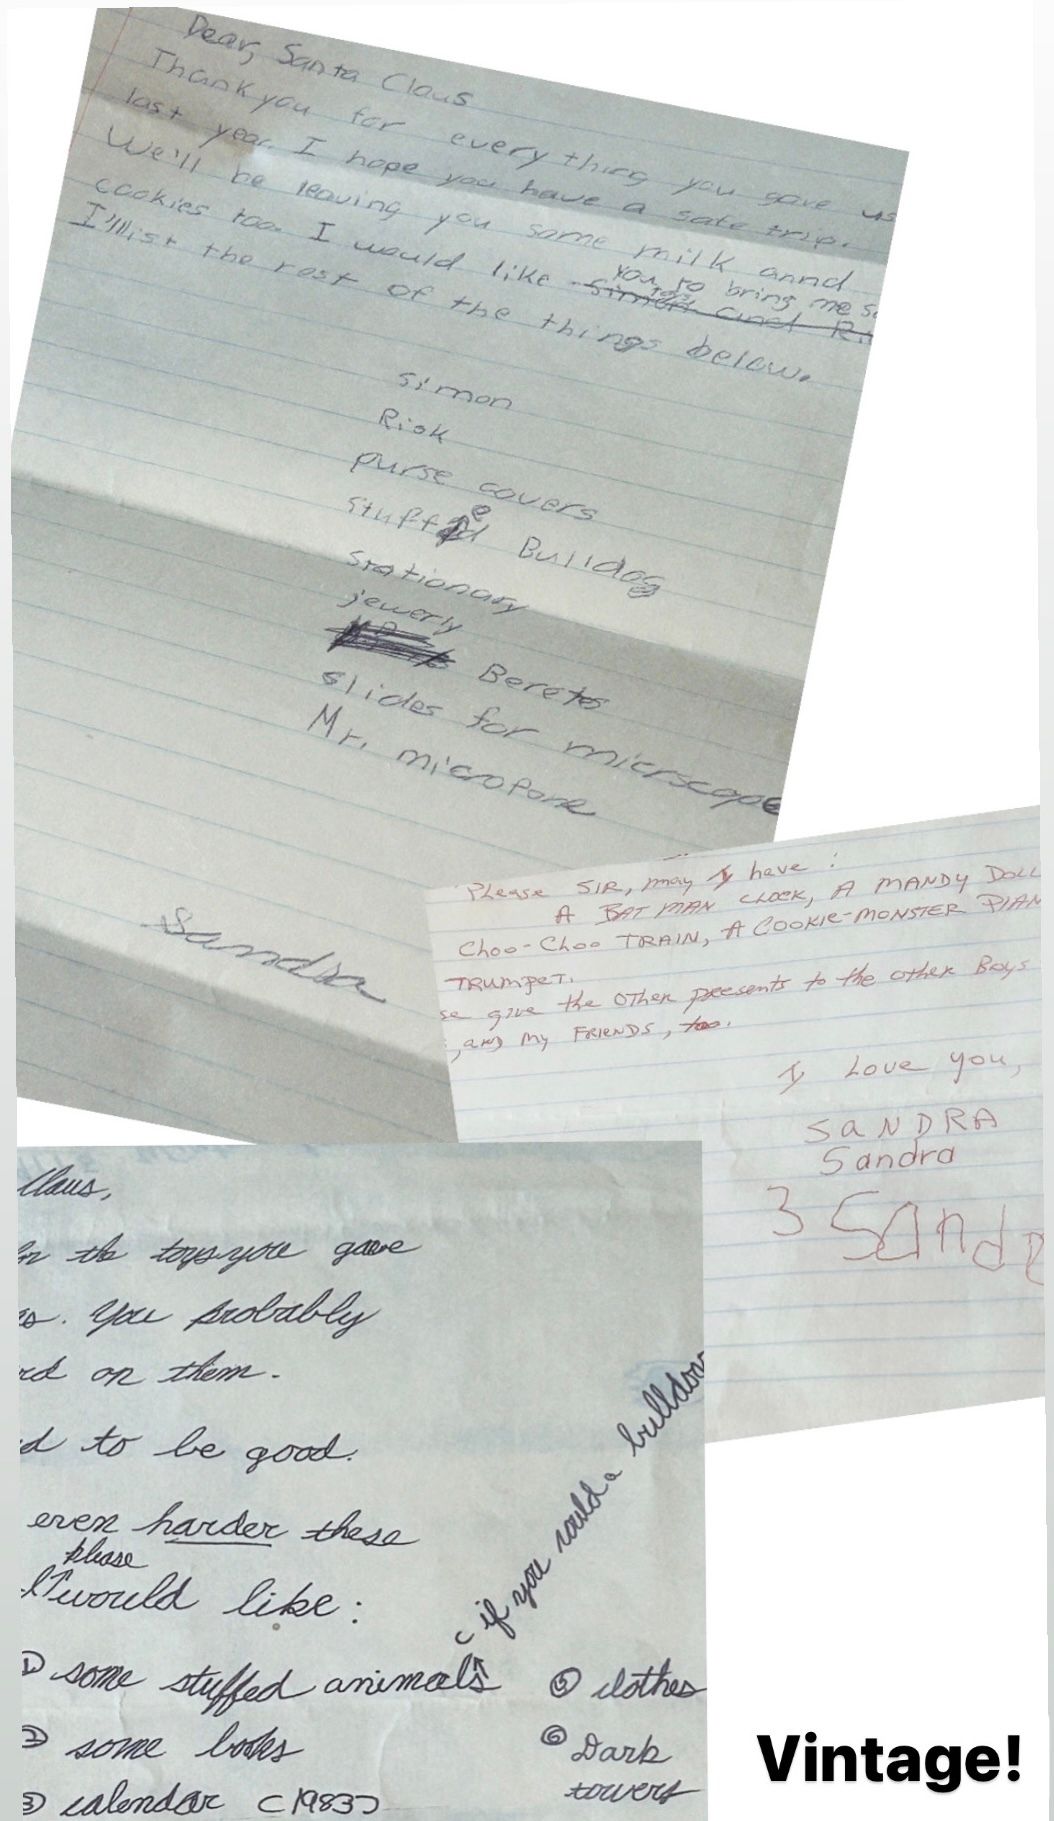 Dear, Santa Claus
Thank you for every thing you gave us
last year. I hope you have a safe trip.
We'll be leaving you some milk annd
cookies too. I would like you to bring me
simon and
I'll list the rest of the things below.
simon
Risk
purse covers
stuffed Bulldog
stationary
jewerly
Beretes
slides for micrscope
Mr. micropone
Sandra
Please SIR, may I have :
A BAT MAN CLOCK, A MANDY DOLL
CHOO-CHOO TRAIN, A COOKIE-MONSTER PIAN
TRUMPET.
se give the other presents to the other Boys
, and my FRIENDS, too.
I Love you,
SaNDRA
Sandra
3 Sand
Claus,
the toys you gave
. You probably
rd on them.
d to be good.
even harder these
please
I would like :
① some stuffed animals
(if you could a bulldog
② some books
③ calendar (1983)
⑤ clothes
⑥ Dark
towers
Vintage!